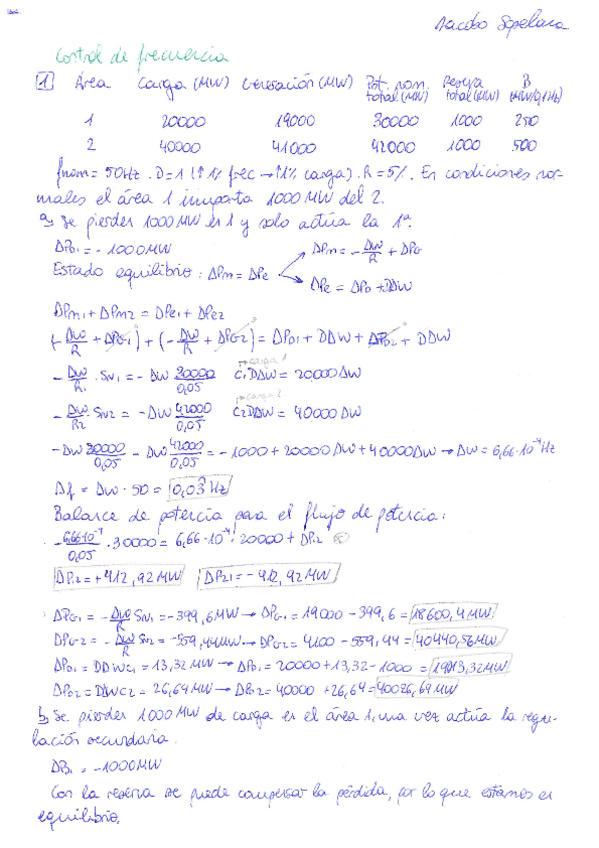 Control de frecuencia
1 Área Carga (MW) Generación (MW) Pot. nom. total (MW) Reserva total (MW) B (MW/0,1Hz)
1 20000 19000 30000 1000 250
2 40000 41000 42000 1000 500
fnom = 50Hz . D=1 (↑1% frec → ↑1% carga) . R=5%. En condiciones nor-
males el área 1 importa 1000 MW del 2.
a) Se pierden 1000MW en 1 y solo actúa la 1ª.
ΔPD1 = -1000MW
Estado equilibrio: ΔPm = ΔPe
ΔPm = -Δw/R + ΔPG
ΔPe = ΔPD + DΔW
ΔPm1 + ΔPm2 = ΔPe1 + ΔPe2
(-Δw/R + ΔPG1) + (-Δw/R + ΔPG2) = ΔPD1 + DΔW + ΔPD2 + DΔW
→ carga 1
-Δw/R1 · SN1 = -Δw 30000/0,05 C1DΔW = 20000Δw
→ carga 2
-Δw/R2 · SN2 = -Δw 42000/0,05 C2DΔW = 40000 ΔW
-Δw 30000/0,05 - Δw 42000/0,05 = -1000 + 20000 Δw + 40000Δw → Δw = 6,66·10⁻⁴ Hz
Δf = Δw · 50 = 0,03 Hz
Balance de potencia para el flujo de potencia:
-6,66·10⁻⁴/0,05 · 30000 = 6,66·10⁻⁴ · 20000 + ΔP12
ΔP12 = +412,92MW ΔP21 = -412,92MW
ΔPG1 = -Δw/R SN1 = -399,6MW → ΔPG1 = 19000 - 399,6 = 18600,4MW
ΔPG2 = -Δw/R SN2 = -559,44MW → ΔPG2 = 4100 - 559,44 = 40440,56MW
ΔPD1 = DDWC1 = 13,32 MW → ΔPD1 = 20000 + 13,32 - 1000 = 19013,32MW
ΔPD2 = DΔWC2 = 26,64 MW → ΔPD2 = 40000 + 26,64 = 40026,64MW
b) Se pierden 1000 MW de carga en el área 1, una vez actúa la regu-
lación secundaria.
= -1000MW
Con la reserva se puede compensar la pérdida, por lo que estamos en
equilibrio.